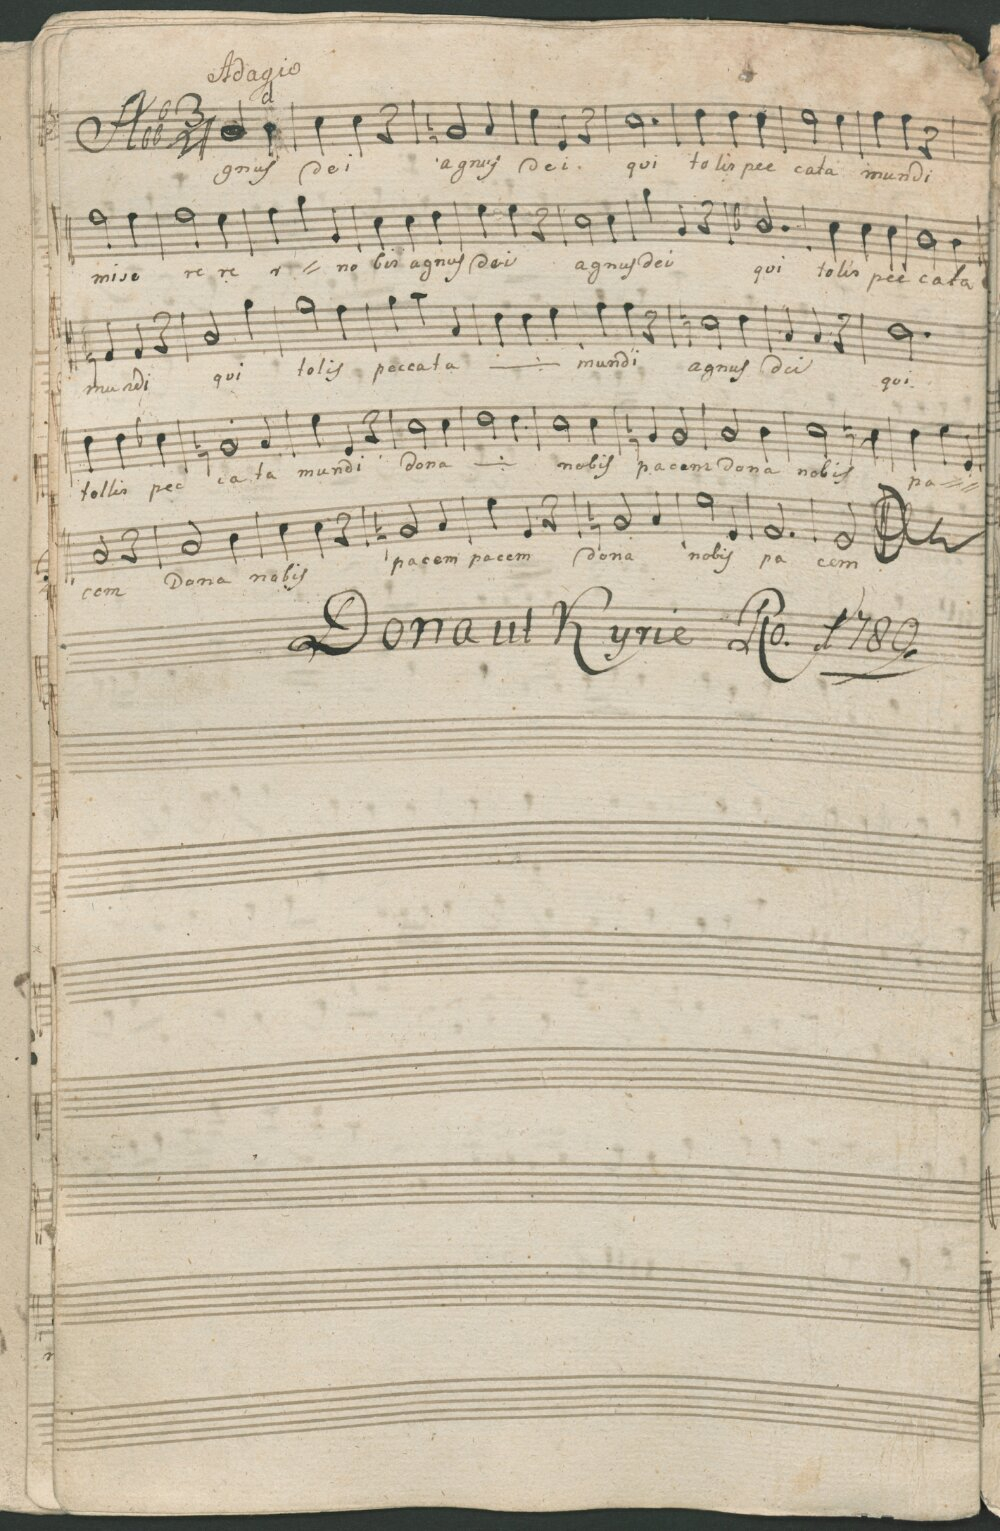 Adagio
d
A gnus dei agnus dei. qui tolis pec cata mundi
mise re re r = no bis agnus dei agnus dei qui tolis pec cata
mundi qui tolis peccata mundi agnus dei qui
tollis pec ca ta mundi dona nobis pacem dona nobis pa
cem Dona nobis pacem pacem dona nobis pa cem
Dona ut Kyrie 1789